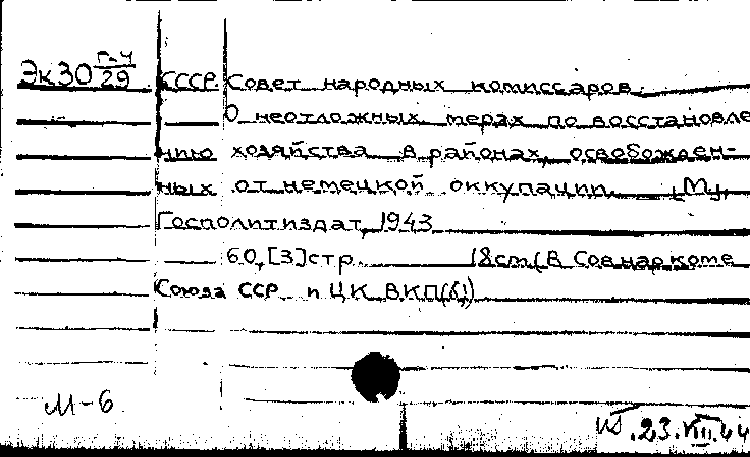 Эк30 Г-4/29 СССР. Совет народных комиссаров.
О неотложных мерах по восстановле
нию хозяйства в районах, освобожден-
ных от немецкой оккупации. [М],
Госполитиздат, 1943
60, [3] стр. 18 см (В Совнаркоме
Союза ССР и ЦК ВКП(б))
М-6
23.VIII.44